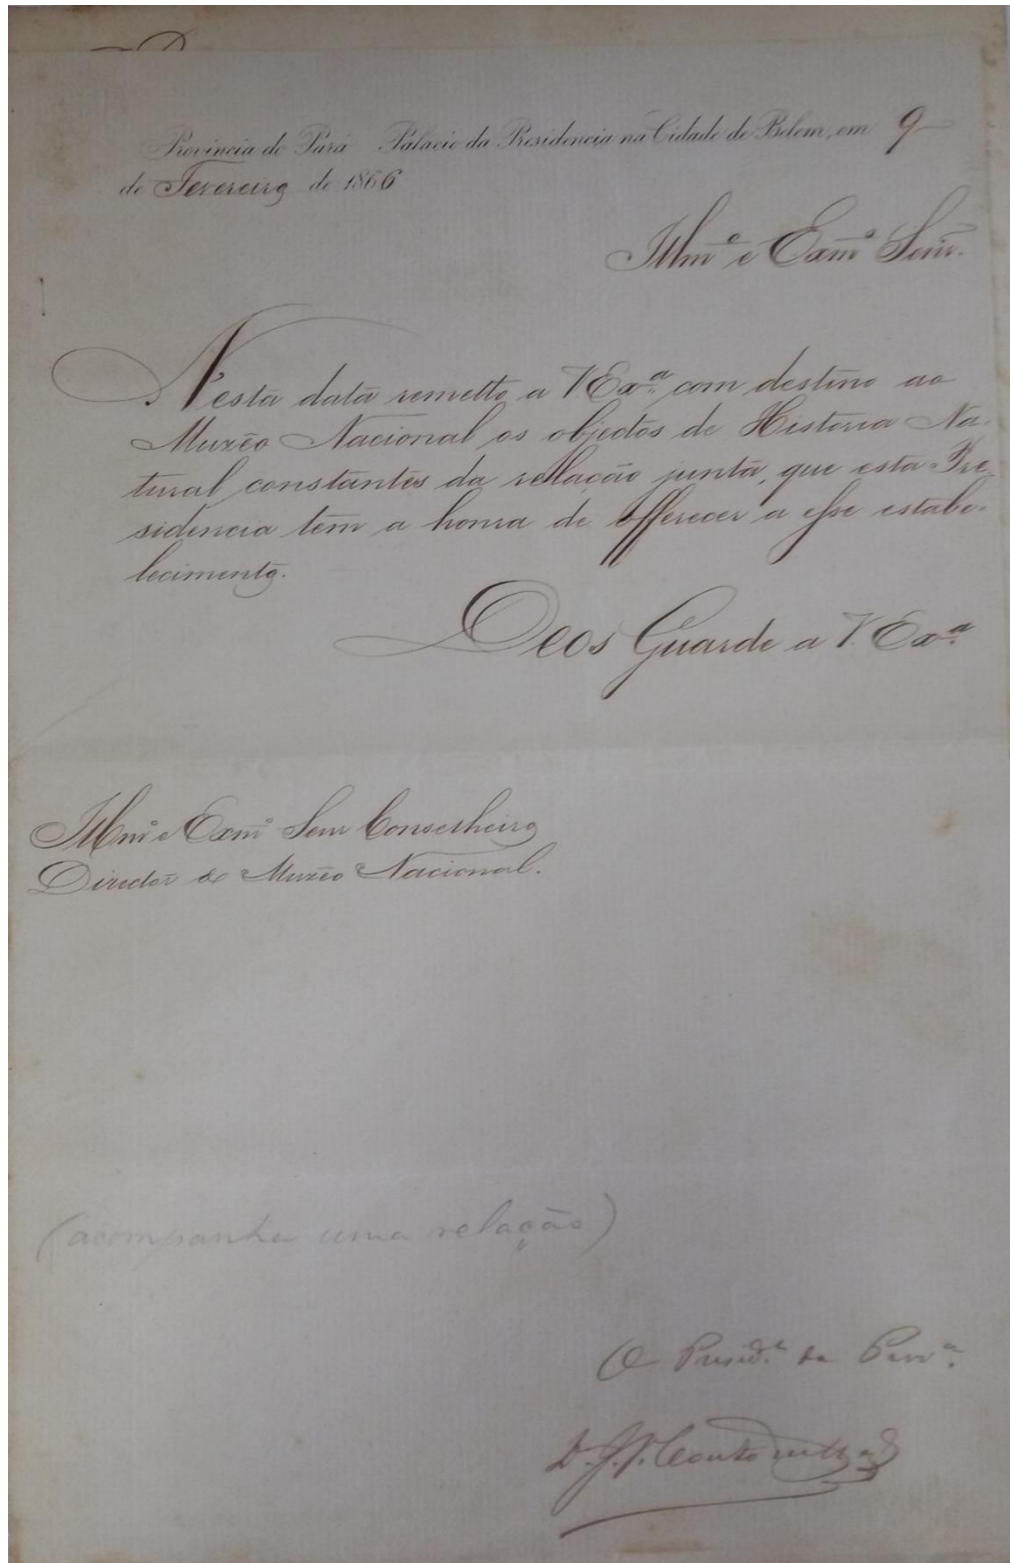 Provincia do Pará Palacio da Presidencia na Cidade de Belem, em 9
de Fevereiro de 1866
Illmº e Exmº Senr.
Nesta data remetto a V Exª com destino ao
Muzêo Nacional os objectos de Historia Na-
tural constantes da rellação junta, que esta Pre-
sidencia tem a honra de offerecer a esse estabe-
lecimento.
Deos Guarde a V. Exª
Illmº e Exmº Senr Conselheiro
Director do Muzêo Nacional.
(acompanha uma relação)
O Presid.e da Provª.
D. J. V. Couto de Mag